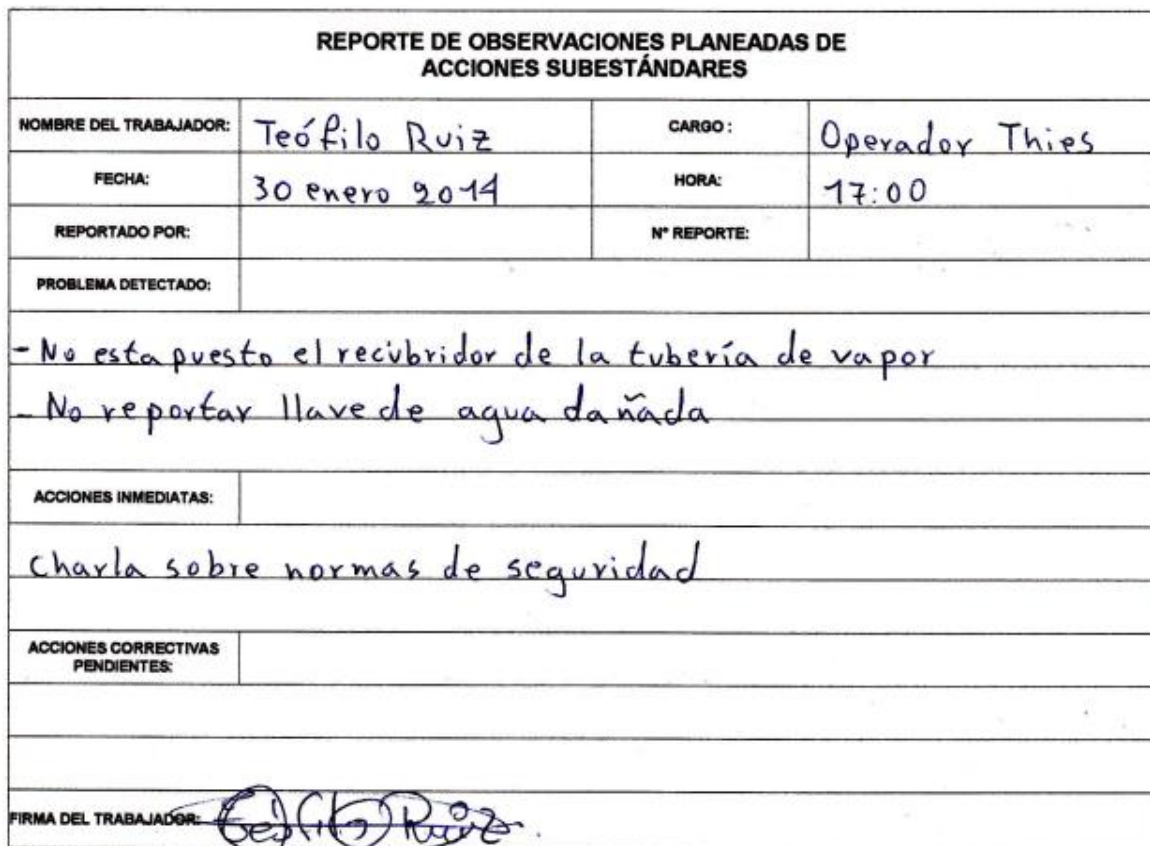 REPORTE DE OBSERVACIONES PLANEADAS DE
ACCIONES SUBESTÁNDARES
NOMBRE DEL TRABAJADOR: Teófilo Ruiz CARGO: Operador Thies
FECHA: 30 enero 2014 HORA: 17:00
REPORTADO POR: N° REPORTE:
PROBLEMA DETECTADO:
- No esta puesto el recubridor de la tubería de vapor
- No reportar llave de agua dañada
ACCIONES INMEDIATAS:
Charla sobre normas de seguridad
ACCIONES CORRECTIVAS
PENDIENTES:
FIRMA DEL TRABAJADOR: Teófilo Ruiz